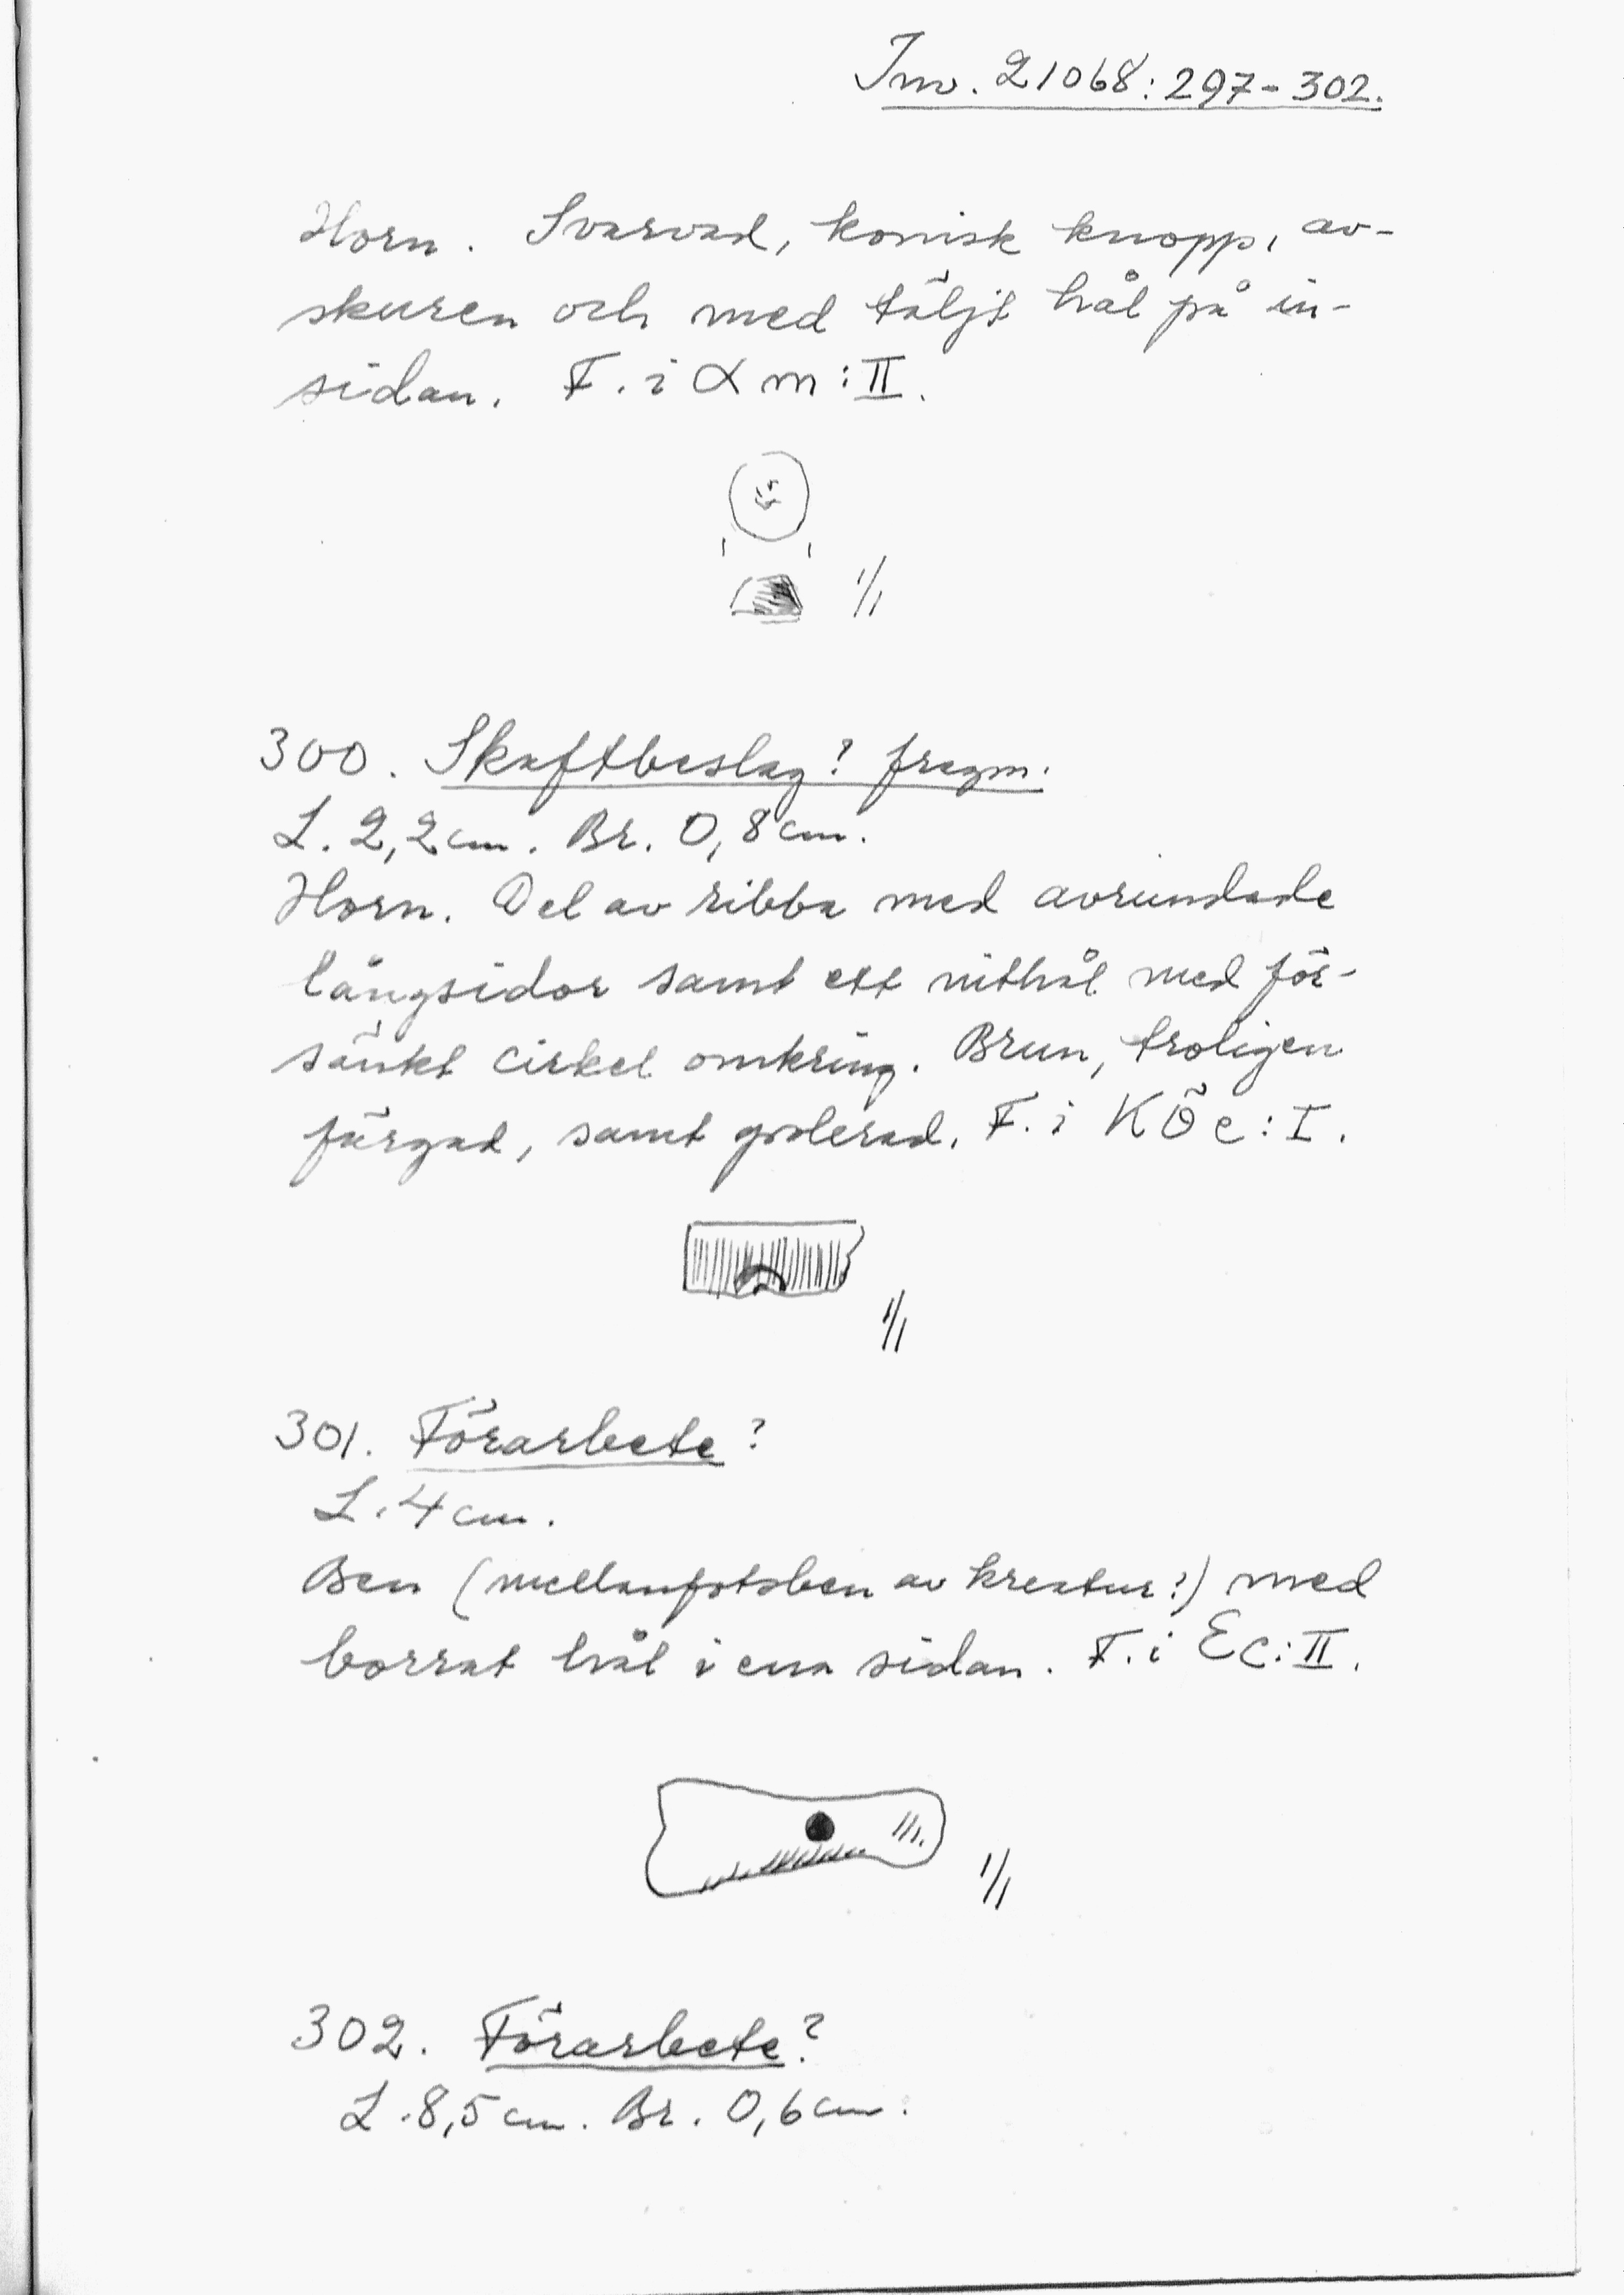 Inv. 21068:297-302.
Horn. Svarvad, konisk knopp, av-
skuren och med täljt hål på in-
sidan. F. i α m:II.
1/1
300. Skaftbeslag? fragm.
L. 2,2 cm. Br. 0,8 cm.
Horn. Del av ribba med avrundade
långsidor samt ett nithål med för-
sänkt cirkel omkring. Brun, troligen
färgat, samt polerad. F. i KÖc:I.
1/1
301. Förarbete?
L. 4 cm.
Ben (mellanfotsben av kreatur?) med
borrat hål i ena sidan. F. i Ec:II.
1/1
302. Förarbete?
L. 8,5 cm. Br. 0,6 cm.